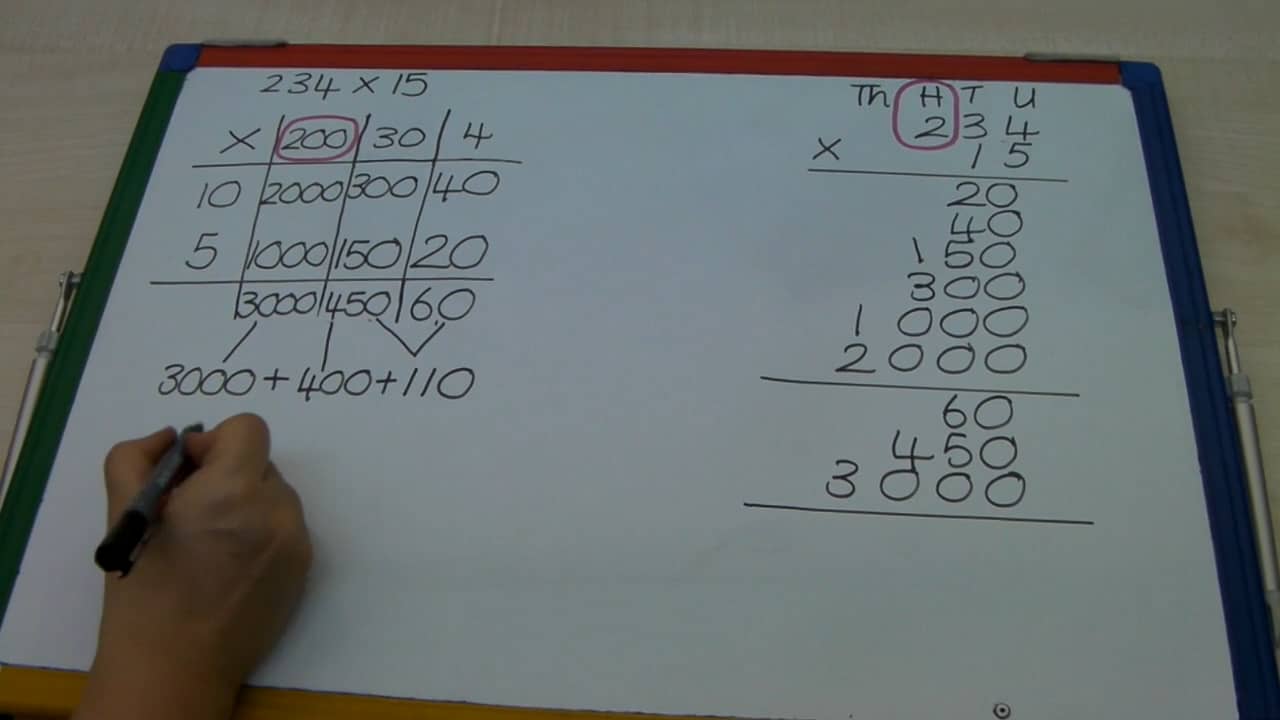 234 × 15
× 200 30 4
10 2000 300 40
5 1000 150 20
3000 450 60
3000 + 400 + 110
Th H T U
2 3 4
× 1 5
20
40
150
300
1000
2000
60
450
3000